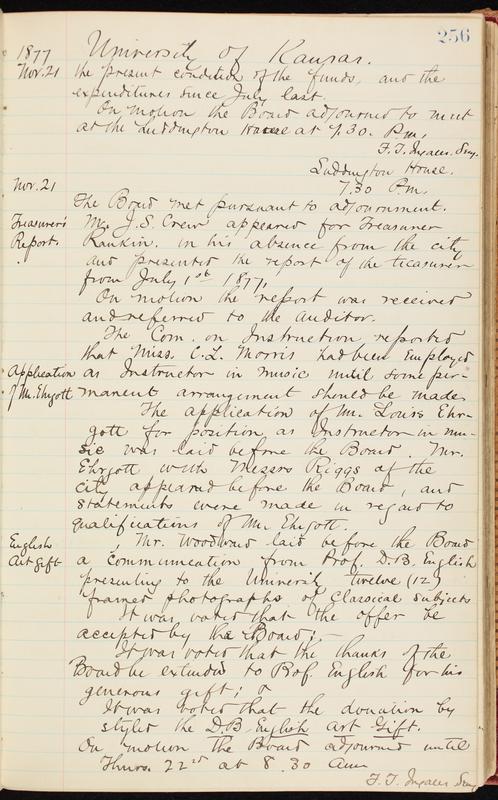 256
University of Kansas.
1877
Nov. 21 the present condition of the funds, and the
expenditures since July last.
On motion the Board adjourned to meet
at the Luddington House at 7.30. P.m,
F. T. Ingalls. Secy.
Luddington House.
Nov. 21 7.30 P.m.
The Board met pursuant to adjournment.
Treasurer's Mr. J. S. Crew appeared for Treasurer
Report. Rankin. in his absence from the city
and presented the report of the treasurer
from July 1st 1877,
On motion the report was received
and referred to the Auditor.
The Com. on Instruction reported
that Miss. C. L. Morris had been Employed
Application as Instructor in music until some per-
of Mr. Ehrgott manent arrangement should be made
The application of Mr. Louis Ehr-
gott for position as Instructor in mu-
sic was laid before the Board. Mr.
Ehrgott with Messrs Riggs of the
city appeared before the Board, and
statements were made in regard to
qualifications of Mr. Ehrgott.
English Mr. Woodward laid before the Board
Art Gift a communication from Prof. D. B. English
presenting to the University twelve (12)
framed photographs of Classical subjects
It was voted that the offer be
accepted by the Board;
It was voted that the thanks of the
Board be extended to Prof. English for his
generous gift;
It was voted that the donation by
styled the D. B. English art Gift.
On motion the Board adjourned until
Thurs. 22nd at 8.30 A.m
F. T. Ingalls Secy